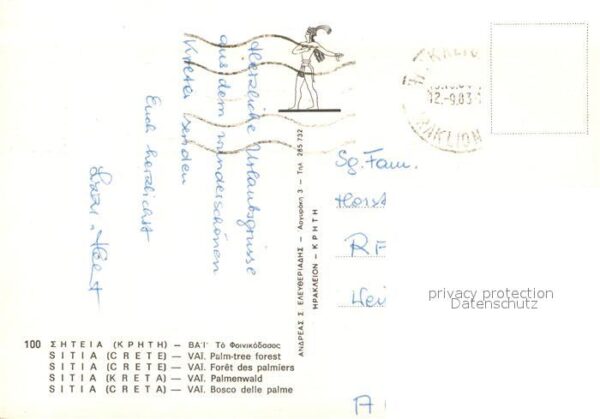 Herzliche Urlaubsgrüsse
aus dem wunderschönen
Kreta senden
Euch herzlichst
ΑΝΔΡΕΑΣ Σ. ΕΛΕΥΘΕΡΙΑΔΗΣ — Αργυράκη 3 — Τηλ. 285 732
ΗΡΑΚΛΕΙΟΝ - ΚΡΗΤΗ
12.-9.83
RAKLION
Sg. Fam.
Horst
RE
Wei
A
privacy protection
Datenschutz
100 ΣΗΤΕΙΑ (ΚΡΗΤΗ) — ΒΑΪ· Τό Φοινικόδασος
SITIA (CRETE) — VAÏ. Palm-tree forest
SITIA (CRETE) — VAÏ. Forêt des palmiers
SITIA (KRETA) — VAÏ. Palmenwald
SITIA (CRETA) — VAÏ. Bosco delle palme